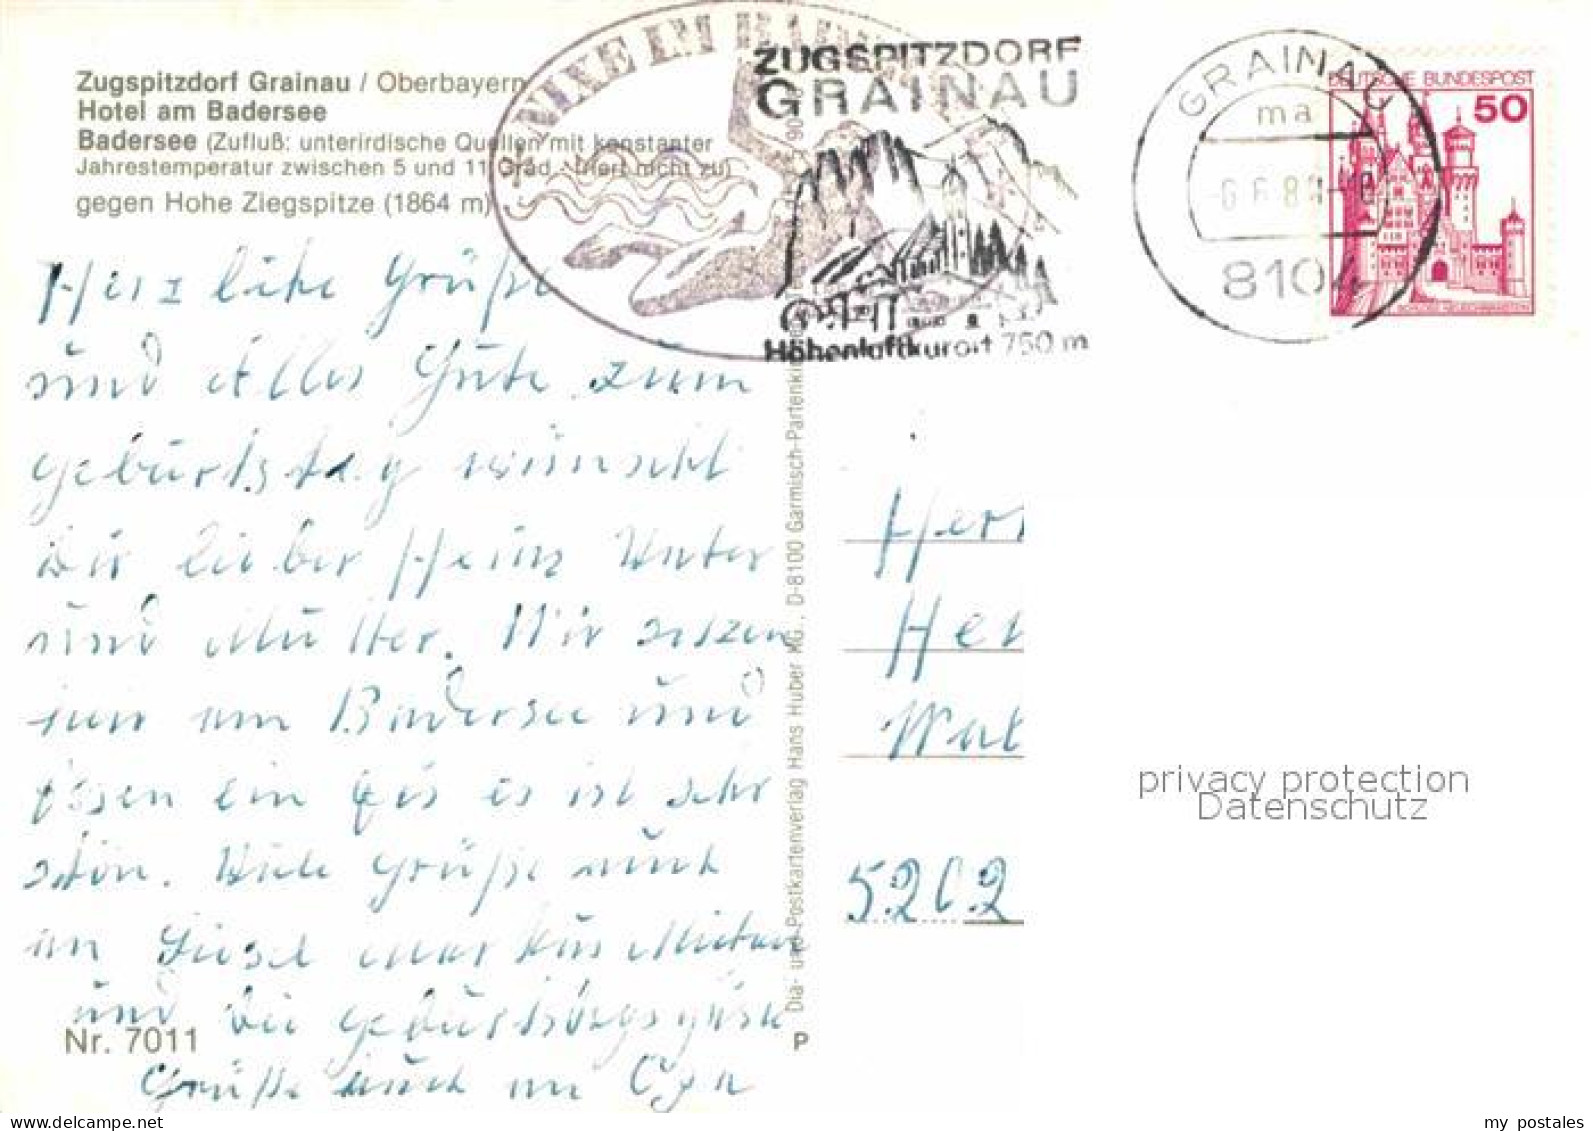 Zugspitzdorf Grainau / Oberbayern
Hotel am Badersee
Badersee (Zufluß: unterirdische Quellen mit konstanter
Jahrestemperatur zwischen 5 und 11 Grad - friert nicht zu)
gegen Hohe Ziegspitze (1864 m)
NIXE IM
ZUGSPITZDORF
GRAINAU
Höhenluftkurort 750 m
GRAINAU
ma
8104
DEUTSCHE BUNDESPOST
50
Herzliche Grüße
und Alles Gute zum
Geburtstag wünscht
Dir lieber Heinz Vater
und Mutter. Wir sitzen
hier am Badersee und
essen ein Eis es ist sehr
schön. Viele Grüße auch
an Markus
und die Geburtstagsgäste
Grüße auch an
Nr. 7011
P
Dia- und Postkartenverlag Hans Huber KG., D-8100 Garmisch-Partenki
Herr
5202
privacy protection
Datenschutz
my postales